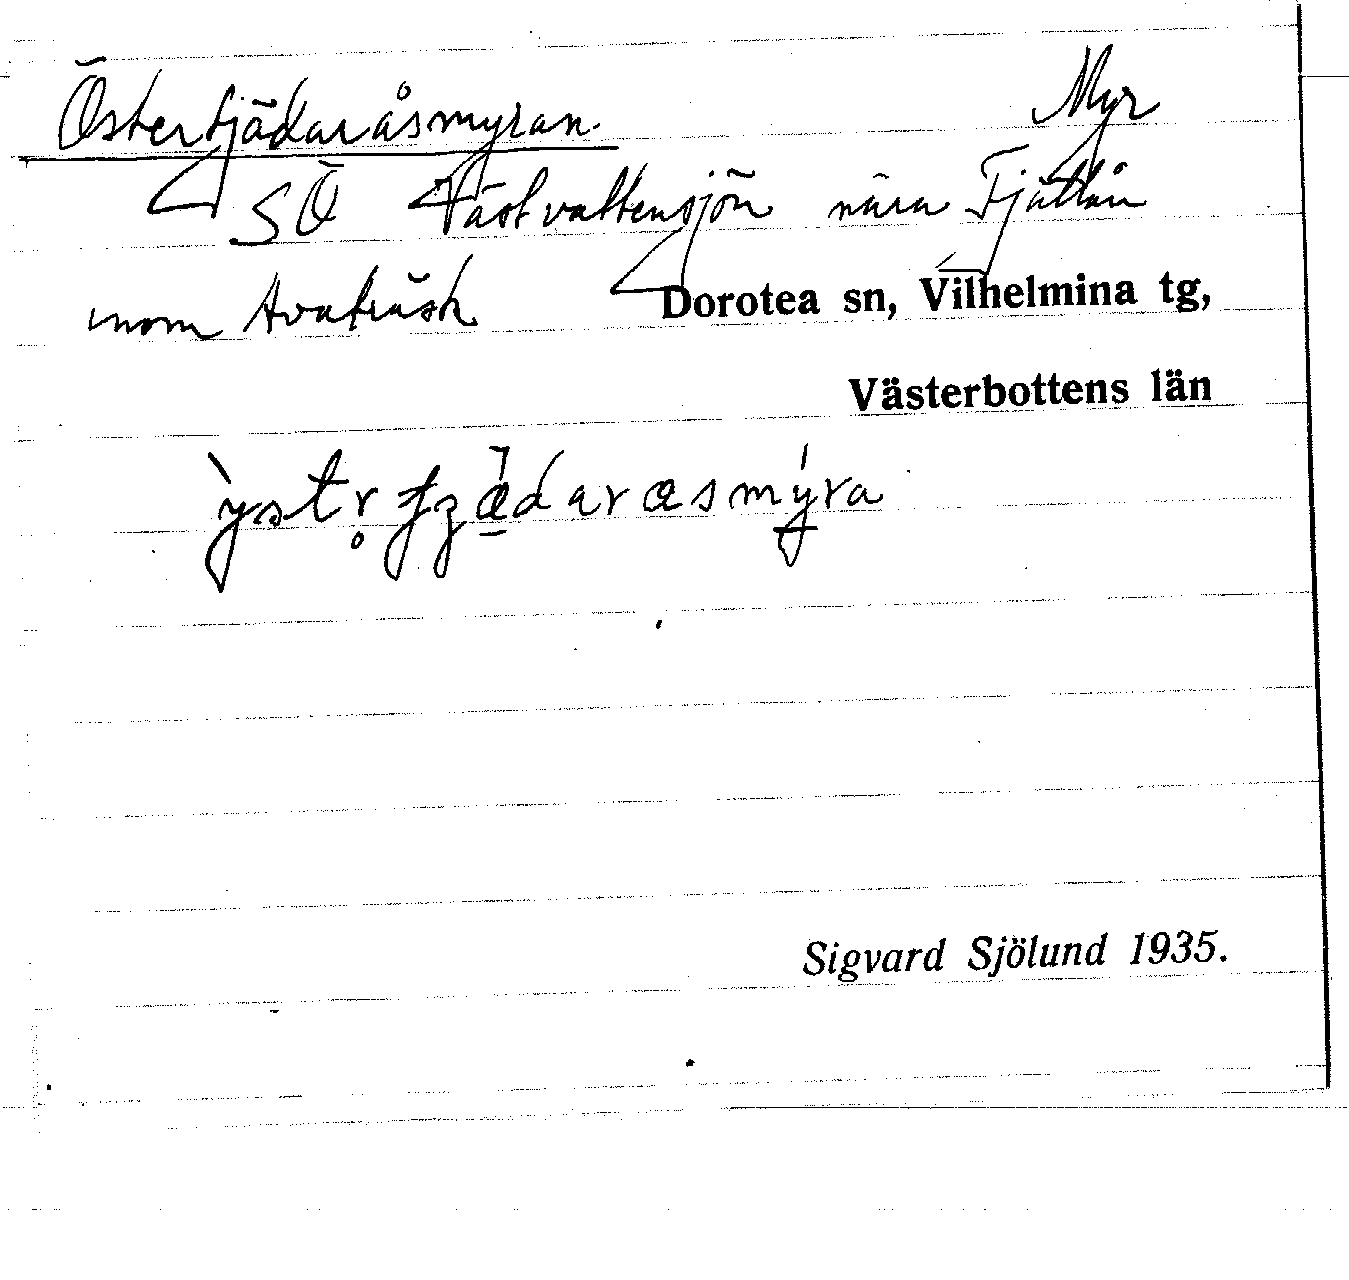 Östertjädaråsmyran. Myr
SÖ Västvattensjön nära Fjätån
inom Avaträsk Dorotea sn, Vilhelmina tg,
Västerbottens län
Sigvard Sjölund 1935.